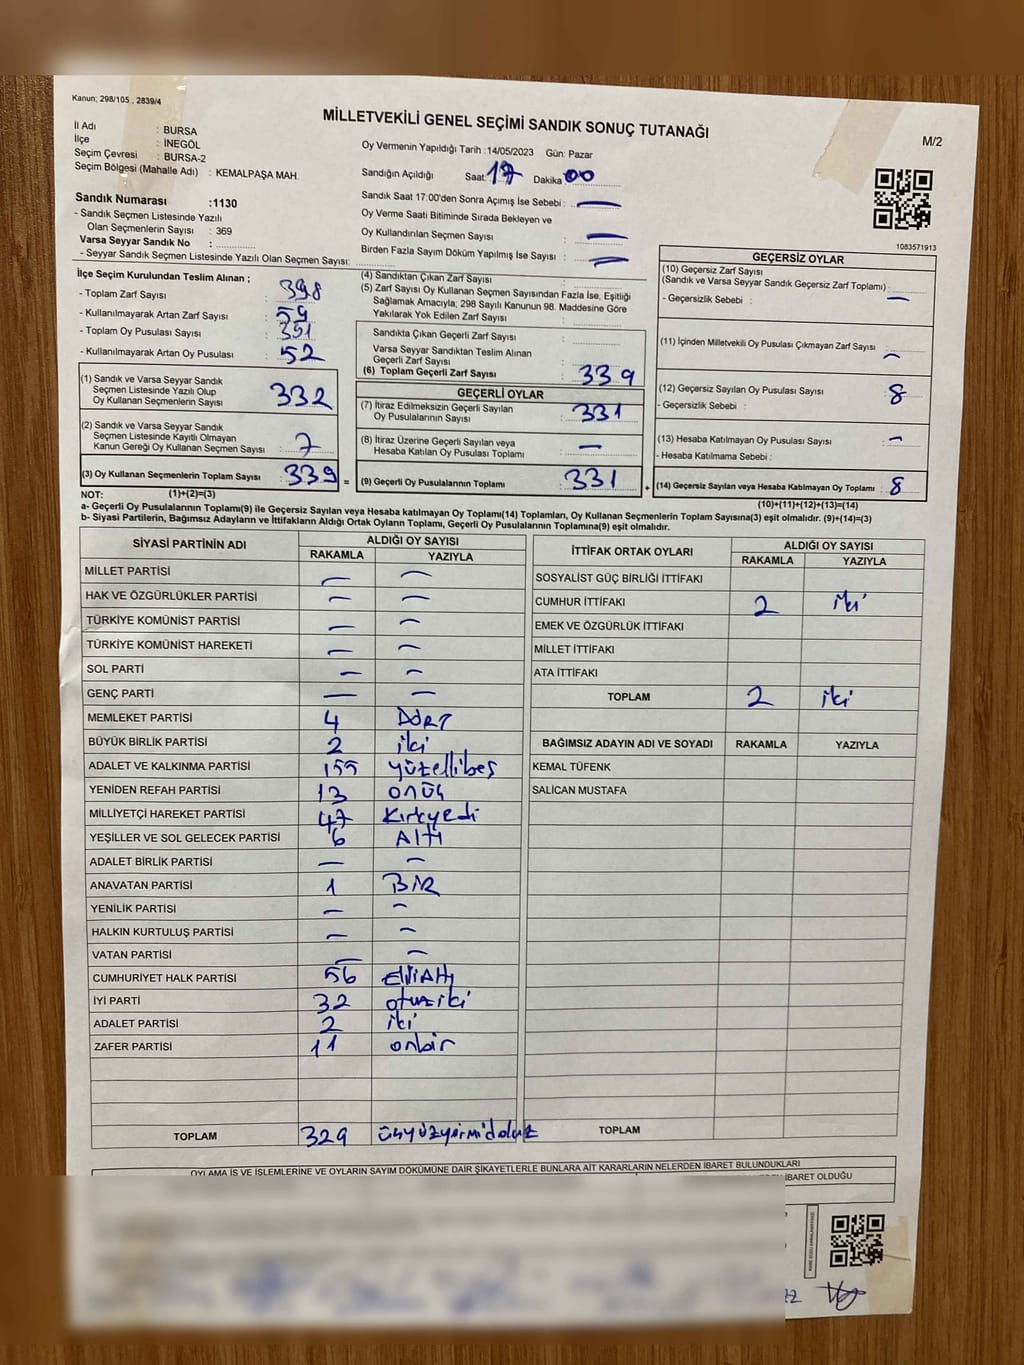 Kanun; 298/105 , 2839/4
MİLLETVEKİLİ GENEL SEÇİMİ SANDIK SONUÇ TUTANAĞI
M/2
İl Adı : BURSA
İlçe : İNEGÖL
Seçim Çevresi : BURSA-2
Seçim Bölgesi (Mahalle Adı) : KEMALPAŞA MAH.
Sandık Numarası :1130
- Sandık Seçmen Listesinde Yazılı
Olan Seçmenlerin Sayısı : 369
Varsa Seyyar Sandık No :
- Seyyar Sandık Seçmen Listesinde Yazılı Olan Seçmen Sayısı:
Oy Vermenin Yapıldığı Tarih :14/05/2023 Gün: Pazar
Sandığın Açıldığı Saat: 17 Dakika 00
Sandık Saat 17:00'den Sonra Açımış İse Sebebi : —
Oy Verme Saati Bitiminde Sırada Bekleyen ve
Oy Kullandırılan Seçmen Sayısı : —
Birden Fazla Sayım Döküm Yapılmış İse Sayısı : —
1083571913
İlçe Seçim Kurulundan Teslim Alınan ;
- Toplam Zarf Sayısı : 398
- Kullanılmayarak Artan Zarf Sayısı : 59
- Toplam Oy Pusulası Sayısı : 391
- Kullanılmayarak Artan Oy Pusulası : 52
(1) Sandık ve Varsa Seyyar Sandık
Seçmen Listesinde Yazılı Olup
Oy Kullanan Seçmenlerin Sayısı : 332
(2) Sandık ve Varsa Seyyar Sandık
Seçmen Listesinde Kayıtlı Olmayan
Kanun Gereği Oy Kullanan Seçmen Sayısı : 7
(3) Oy Kullanan Seçmenlerin Toplam Sayısı : 339 =
(4) Sandıktan Çıkan Zarf Sayısı :
(5) Zarf Sayısı Oy Kullanan Seçmen Sayısından Fazla İse, Eşitliği
Sağlamak Amacıyla; 298 Sayılı Kanunun 98. Maddesine Göre
Yakılarak Yok Edilen Zarf Sayısı :
Sandıkta Çıkan Geçerli Zarf Sayısı :
Varsa Seyyar Sandıktan Teslim Alınan
Geçerli Zarf Sayısı :
(6) Toplam Geçerli Zarf Sayısı : 339
GEÇERLİ OYLAR
(7) İtiraz Edilmeksizin Geçerli Sayılan
Oy Pusulalarının Sayısı : 331
(8) İtiraz Üzerine Geçerli Sayılan veya
Hesaba Katılan Oy Pusulası Toplamı : —
(9) Geçerli Oy Pusulalarının Toplamı : 331 +
GEÇERSİZ OYLAR
(10) Geçersiz Zarf Sayısı
(Sandık ve Varsa Seyyar Sandık Geçersiz Zarf Toplamı) :
- Geçersizlik Sebebi : —
(11) İçinden Milletvekili Oy Pusulası Çıkmayan Zarf Sayısı : —
(12) Geçersiz Sayılan Oy Pusulası Sayısı : 8
- Geçersizlik Sebebi :
(13) Hesaba Katılmayan Oy Pusulası Sayısı : —
- Hesaba Katılmama Sebebi :
(14) Geçersiz Sayılan veya Hesaba Katılmayan Oy Toplamı : 8
NOT: (1)+(2)=(3)
(10)+(11)+(12)+(13)=(14)
a- Geçerli Oy Pusulalarının Toplamı(9) ile Geçersiz Sayılan veya Hesaba katılmayan Oy Toplamı(14) Toplamları, Oy Kullanan Seçmenlerin Toplam Sayısına(3) eşit olmalıdır. (9)+(14)=(3)
b- Siyasi Partilerin, Bağımsız Adayların ve İttifakların Aldığı Ortak Oyların Toplamı, Geçerli Oy Pusulalarının Toplamına(9) eşit olmalıdır.
SİYASİ PARTİNİN ADI
ALDIĞI OY SAYISI
RAKAMLA YAZIYLA
MİLLET PARTİSİ — —
HAK VE ÖZGÜRLÜKLER PARTİSİ — —
TÜRKİYE KOMÜNİST PARTİSİ — —
TÜRKİYE KOMÜNİST HAREKETİ — —
SOL PARTİ — —
GENÇ PARTİ — —
MEMLEKET PARTİSİ 4 DÖRT
BÜYÜK BİRLİK PARTİSİ 2 iki
ADALET VE KALKINMA PARTİSİ 155 yüzellibeş
YENİDEN REFAH PARTİSİ 13 onüç
MİLLİYETÇİ HAREKET PARTİSİ 47 Kırkyedi
YEŞİLLER VE SOL GELECEK PARTİSİ 6 Altı
ADALET BİRLİK PARTİSİ — —
ANAVATAN PARTİSİ 1 BİR
YENİLİK PARTİSİ — —
HALKIN KURTULUŞ PARTİSİ — —
VATAN PARTİSİ — —
CUMHURİYET HALK PARTİSİ 56 ElliAltı
İYİ PARTİ 32 otuziki
ADALET PARTİSİ 2 iki
ZAFER PARTİSİ 11 onbir
TOPLAM 329 üçyüzyirmidokuz
İTTİFAK ORTAK OYLARI
ALDIĞI OY SAYISI
RAKAMLA YAZIYLA
SOSYALİST GÜÇ BİRLİĞİ İTTİFAKI
CUMHUR İTTİFAKI 2 iki
EMEK VE ÖZGÜRLÜK İTTİFAKI
MİLLET İTTİFAKI
ATA İTTİFAKI
TOPLAM 2 iki
BAĞIMSIZ ADAYIN ADI VE SOYADI RAKAMLA YAZIYLA
KEMAL TÜFENK
SALİCAN MUSTAFA
TOPLAM
OYLAMA İŞ VE İŞLEMLERİNE VE OYLARIN SAYIM DÖKÜMÜNE DAİR ŞİKAYETLERLE BUNLARA AİT KARARLARIN NELERDEN İBARET BULUNDUKLARI
İBARET OLDUĞU